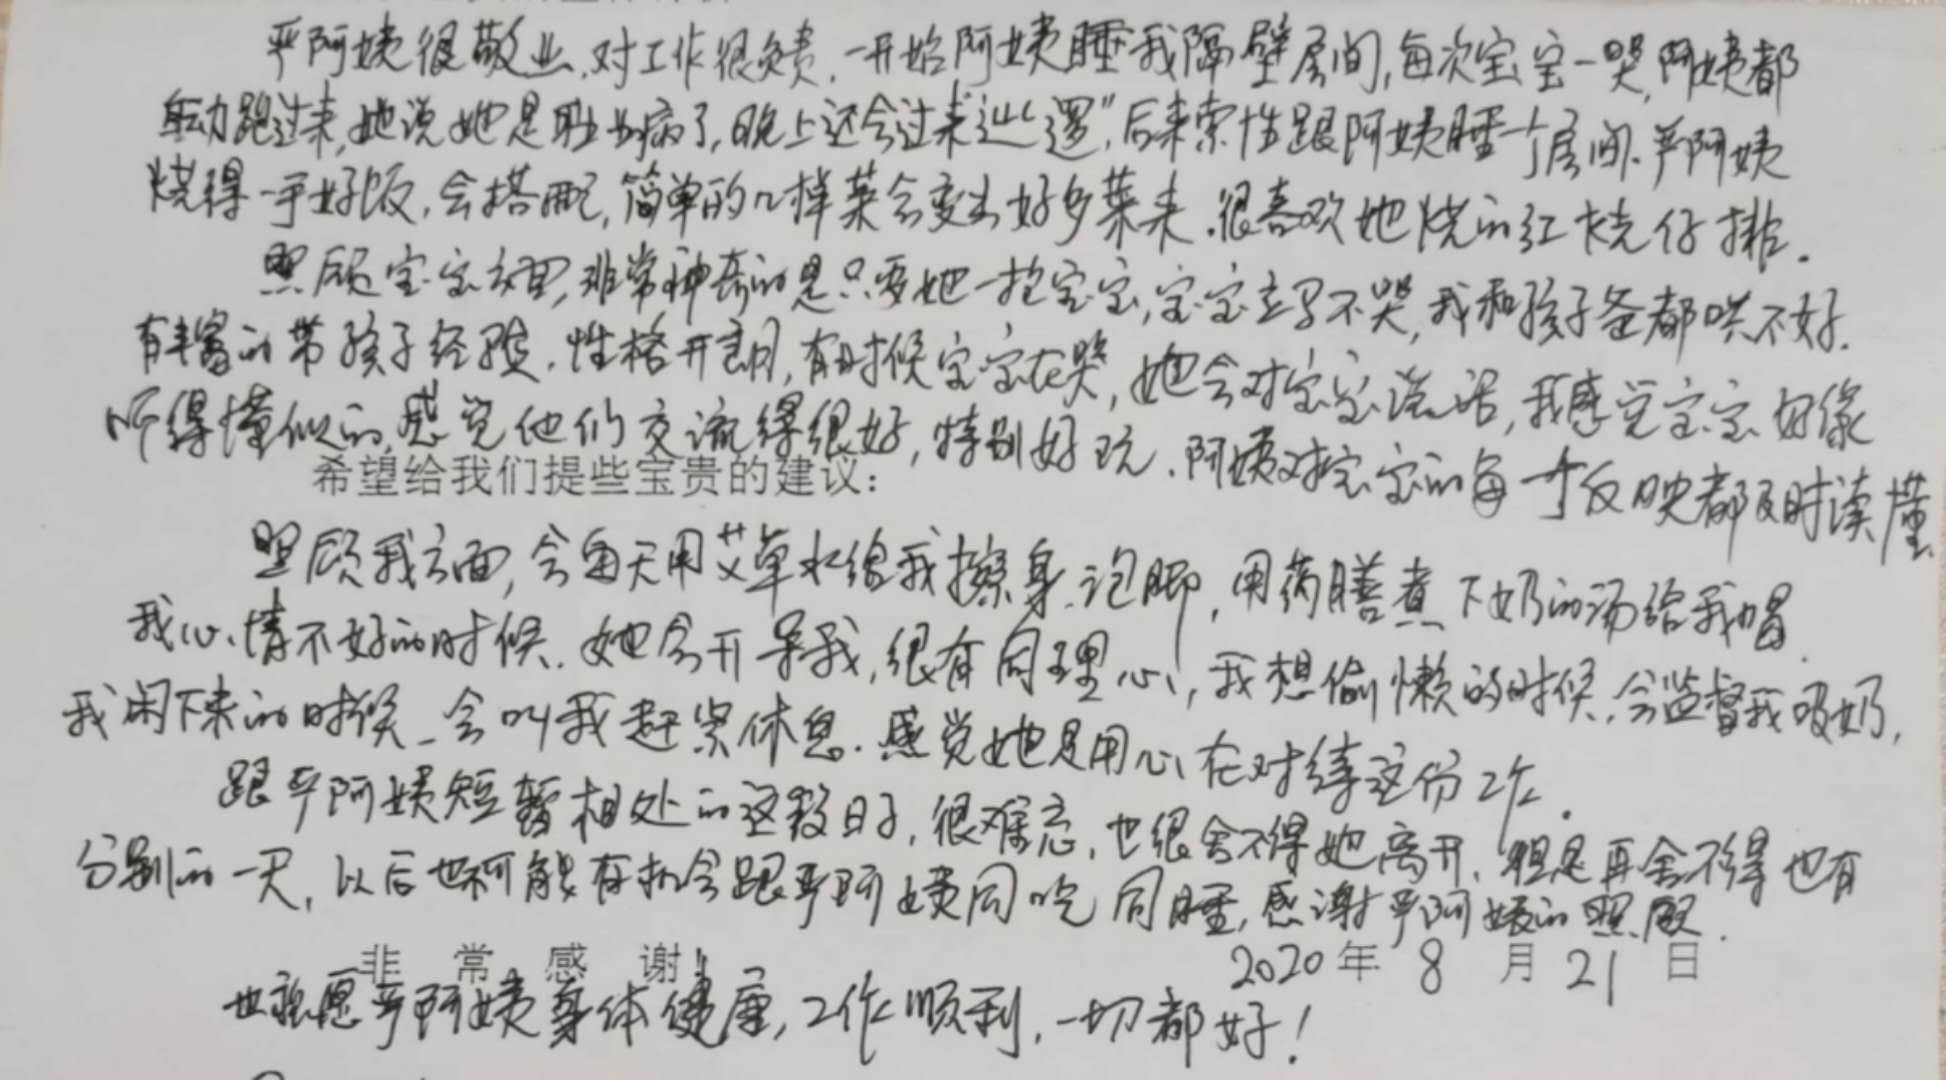 严阿姨很敬业,对工作很负责,一开始阿姨睡我隔壁房间,每次宝宝一哭,阿姨都
主动跑过来,她说她是职业病了,晚上还会过来巡“逻”,后来索性跟阿姨睡一个房间.严阿姨
烧得一手好饭,会搭配,简单的几样菜会变出好多菜来.很喜欢她烧的红烧仔排.
照顾宝宝方面,非常神奇的是只要她一抱宝宝,宝宝立马不哭,我和孩子爸都哄不好.
有丰富的带孩子经验.性格开朗,有时候宝宝在哭,她会对宝宝说话,我感觉宝宝好像
听得懂似的,感觉他们交流得很好,特别好玩.阿姨对宝宝的每个反映都及时读懂
希望给我们提些宝贵的建议:
照顾我方面,会每天用艾草水给我擦身.泡脚,用药膳煮下奶的汤给我喝.
我心情不好的时候.她会开导我,很有同理心,我想偷懒的时候,会监督我吸奶,
我闲下来的时候,会叫我赶紧休息.感觉她是用心在对待这份工作.
跟严阿姨短暂相处的这段日子,很难忘,也很舍不得她离开,但是再舍不得也有
分别的一天,以后也不可能有机会跟严阿姨同吃同睡,感谢严阿姨的照顾.
非常感谢! 2020年8月21日
也祝愿严阿姨身体健康,工作顺利,一切都好!